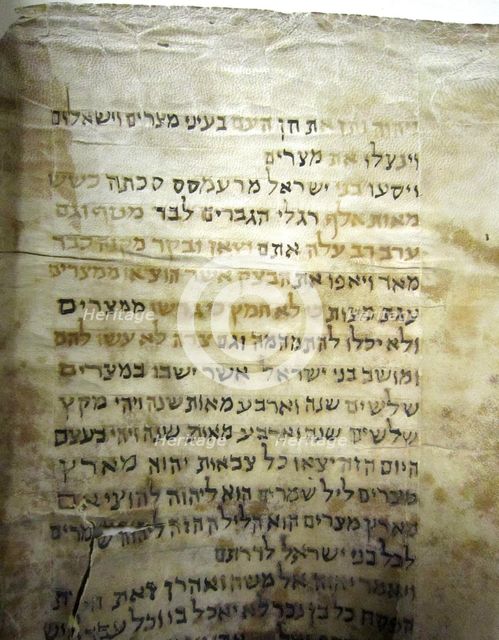 ויהוה נתן את חן העם בעיני מצרים וישאלום
וינצלו את מצרים
ויסעו בני ישראל מרעמסס סכתה כשש
מאות אלף רגלי הגברים לבד מטף וגם
ערב רב עלה אתם וצאן ובקר מקנה כבד
מאד ויאפו את הבצק אשר הוציאו ממצרים
עגת מצות כי לא חמץ כי גרשו ממצרים
ולא יכלו להתמהמה וגם צדה לא עשו להם
ומושב בני ישראל אשר ישבו במצרים
שלשים שנה וארבע מאות שנה ויהי מקץ
שלשים שנה וארבע מאות שנה ויהי בעצם
היום הזה יצאו כל צבאות יהוה מארץ
מצרים ליל שמרים הוא ליהוה להוציאם
מארץ מצרים הוא הלילה הזה ליהוה שמרים
לכל בני ישראל לדרתם
ויאמר יהוה אל משה ואהרן זאת חקת
הפסח כל בן נכר לא יאכל בו וכל עבד איש
Heritage
Heritage
Heritage
Heritage
Heritage
Heritage